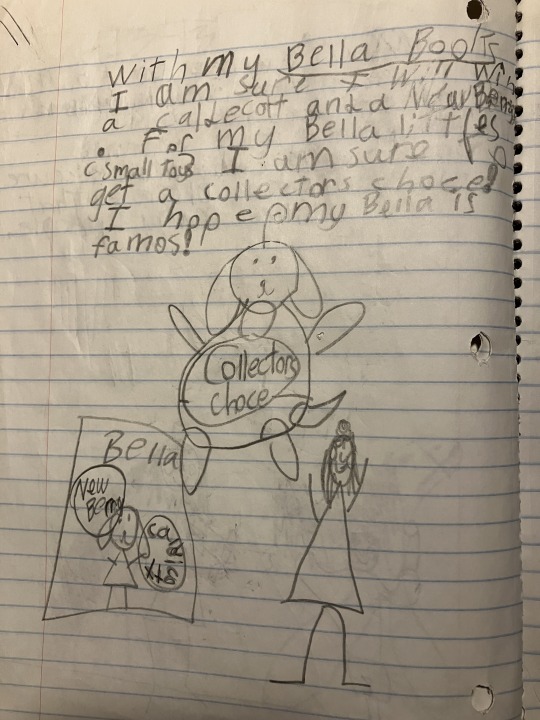 with my Bella Books
I am sure I will win
a caldecott and a New Beny
. For my Bella littles
(small toys) I am sure to
get a collectors choce!
I hope my Bella is
famos!
Collectors
choce
Bella
New
Beny